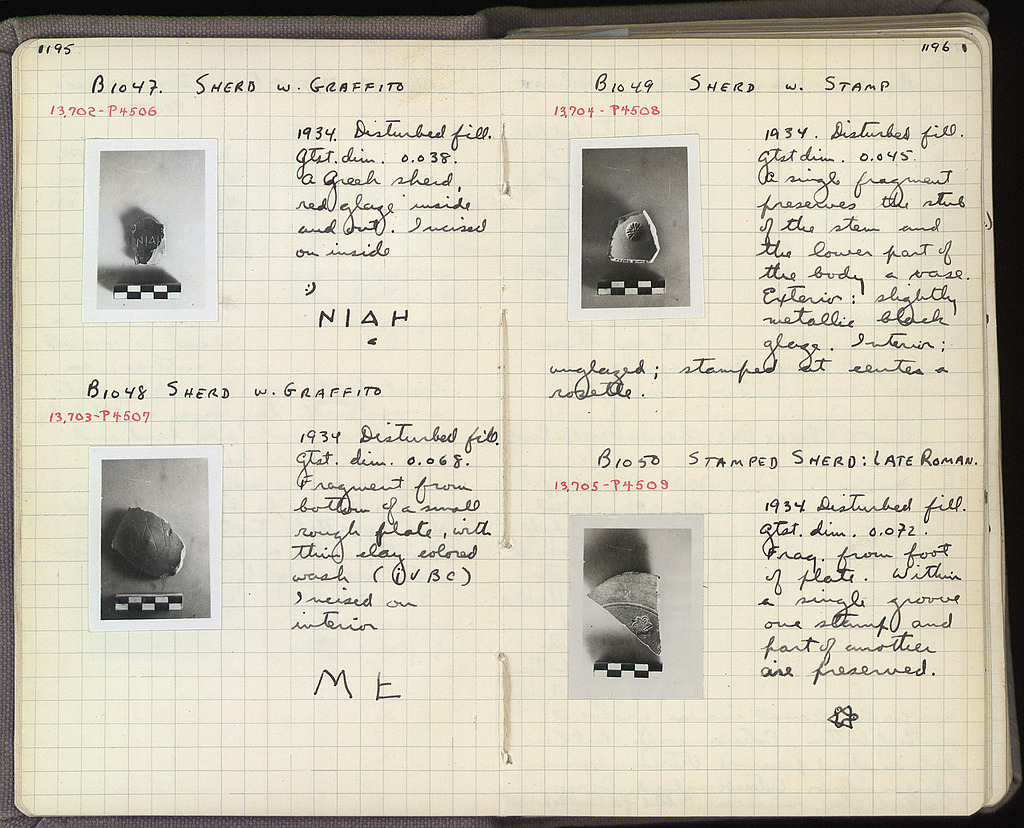 1195
B1047. SHERD W. GRAFFITO
13,702-P4506
1934. Disturbed fill.
Gtst. dim. 0.038.
A Greek sherd,
red glaze inside
and out. Incised
on inside
NIAH
B1048 SHERD W. GRAFFITO
13,703-P4507
1934 Disturbed fill.
Gtst. dim. 0.068.
Fragment from
bottom of a small
rough plate, with
thin clay colored
wash (IVBC)
Incised on
interior
ME
1196
B1049 SHERD W. STAMP
13,704-P4508
1934. Disturbed fill.
Gtst dim. 0.045.
A single fragment
preserves the stub
of the stem and
the lower part of
the body a vase.
Exterior: slightly
metallic black
glaze. Interior;
unglazed; stamped at center a
rosette.
B1050 STAMPED SHERD: LATE ROMAN.
13,705-P4509
1934 Disturbed fill.
Gtst. dim. 0.072.
Frag. from foot
of plate. Within
a single groove
one stamp and
part of another
are preserved.